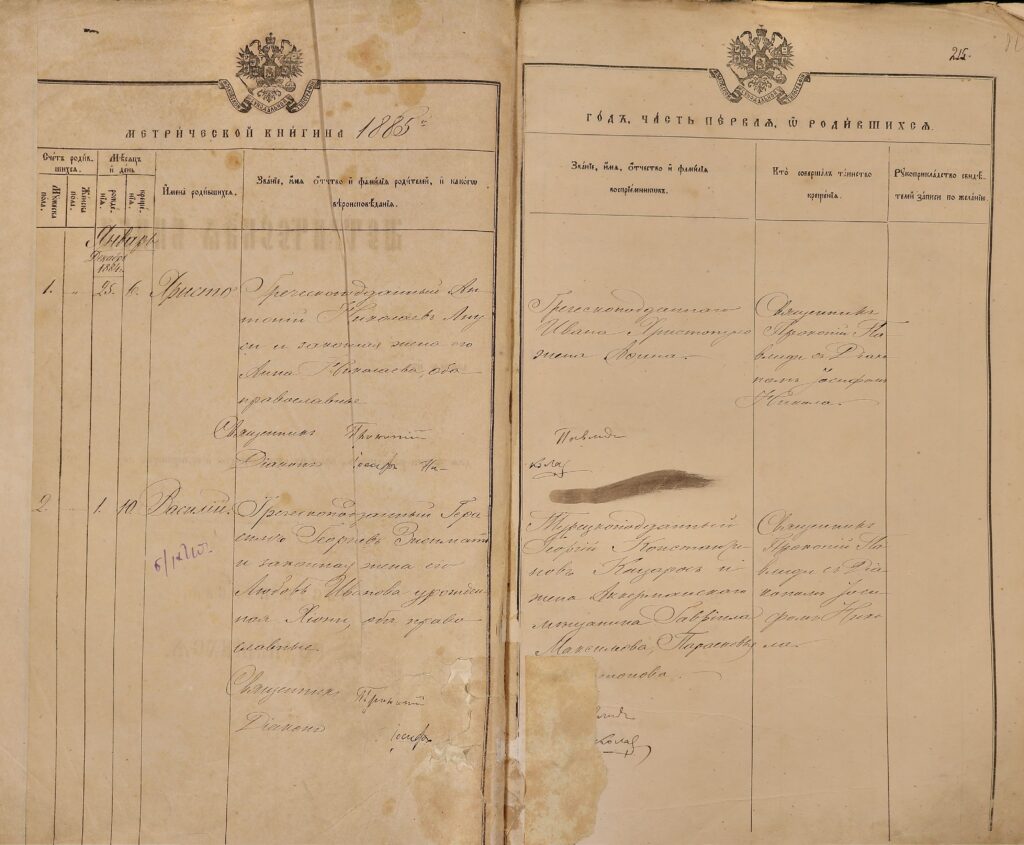 МЕТРИ́ЧЕСКОЙ КНИ́ГИ НА 1885 г̃
Сче́тъ роди́в-
шихся.
Му́жеска пола.
Же́нска пола.
Мѣ́сяцъ
и҆ день
рожде́нїѧ.
креще́нїѧ.
И҆мена̀ роди́вшихся.
Зва́нїе, и҆́мѧ ѻ҆́тчество и҆ фами́лїѧ роди́телей, и҆ како́гѡ
вѣроисповѣ́данїѧ.
Январь
Декабрь
1884.
1. „ 25. 6. Христо
Греческоподданный Ан-
Николаевъ
и законная жена его
Анна Николаева, оба
православные
Священникъ Прокопій
Діаконъ Іосифъ Ни-
2. „ 1. 10. Василій.
Греческоподданный Гера-
симъ Георгіевъ
и законная жена его
Любовь Иванова урожден-
ная Хіони, оба право-
славные.
Священникъ Прокопій
Діаконъ Іосифъ
215.
ГО́ДЪ, ЧА́СТЬ ПЕ́РВАЯ, Ѡ҆ РОДИ́ВШИХСЯ.
Зва́нїе, и҆́мѧ, ѻ҆́тчество и҆ фами́лїѧ
воспрїе́мниковъ.
Кто̀ соверша́лъ та́инство
креще́нїѧ.
Рꙋкоприкла́дство свидѣ́-
телей за́писи по жела́нїю.
Греческоподданнаго
Ивана
жена
Священникъ
Прокопій Па-
влиди съ Діа-
кономъ Іосифомъ
Никола.
Павлиди
кола
Турецкоподданный
Георгій Константи-
новъ и
жена Аккерманскаго
мѣщанина Гавріила
Максимова, Параскева
Священникъ
Прокопій Па-
влиди съ Діа-
кономъ Іоси-
фомъ Нико-
ла.
влиди
кола